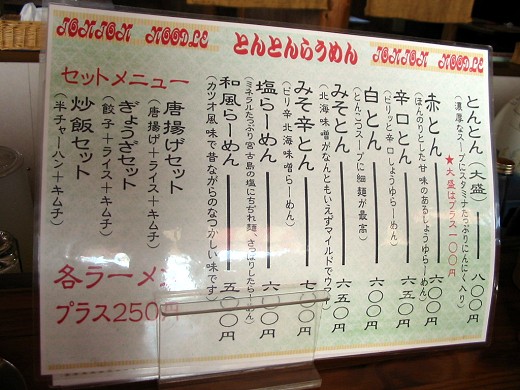 TONTON NOODLE とんとんらうめん TONTON NOODLE
とんとん(大盛) 八〇〇円
(濃厚なスープにスタミナたっぷりにんにく入り)
★大盛はプラス一〇〇円
赤とん 六〇〇円
(ほんのりとした甘味のあるしょうゆらーめん)
辛口とん 六五〇円
(ピリッと辛口しょうゆらーめん)
白とん 六〇〇円
(とんこつスープに細麺が最高)
みそとん 六五〇円
(北海味噌がなんともいえずマイルドでウマ
みそ辛とん 七〇〇円
(ピリ辛北海味噌らーめん)
塩らーめん 六〇〇円
(ミネラルたっぷり宮古島の塩にちぢれ麺、さっぱりしたらーめん)
和風らーめん 五〇〇円
(カツオ風味で昔ながらのなつかしい味です)
セットメニュー
唐揚げセット
(唐揚げ+ライス+キムチ)
ぎょうざセット
(餃子+ライス+キムチ)
炒飯セット
(半チャーハン+キムチ)
各ラーメン
プラス250円